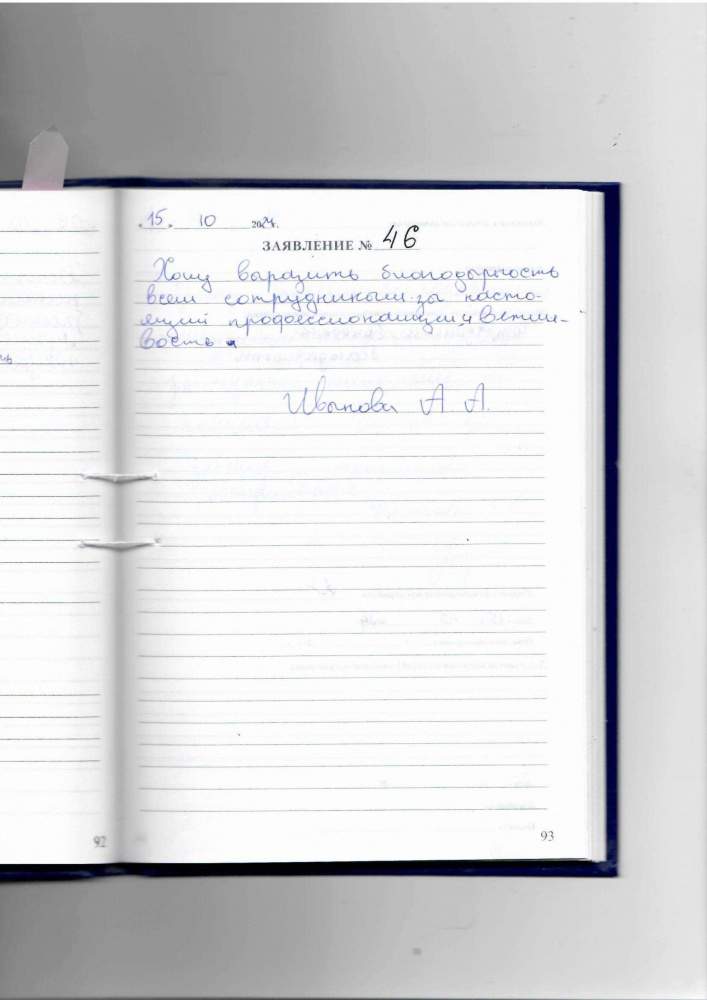 "15" 10 2024г.
ЗАЯВЛЕНИЕ № 46
Хочу выразить благодарность
всем сотрудникам за насто-
ящий профессионализм и вежли-
вость.
Иванова А. А.
92
93